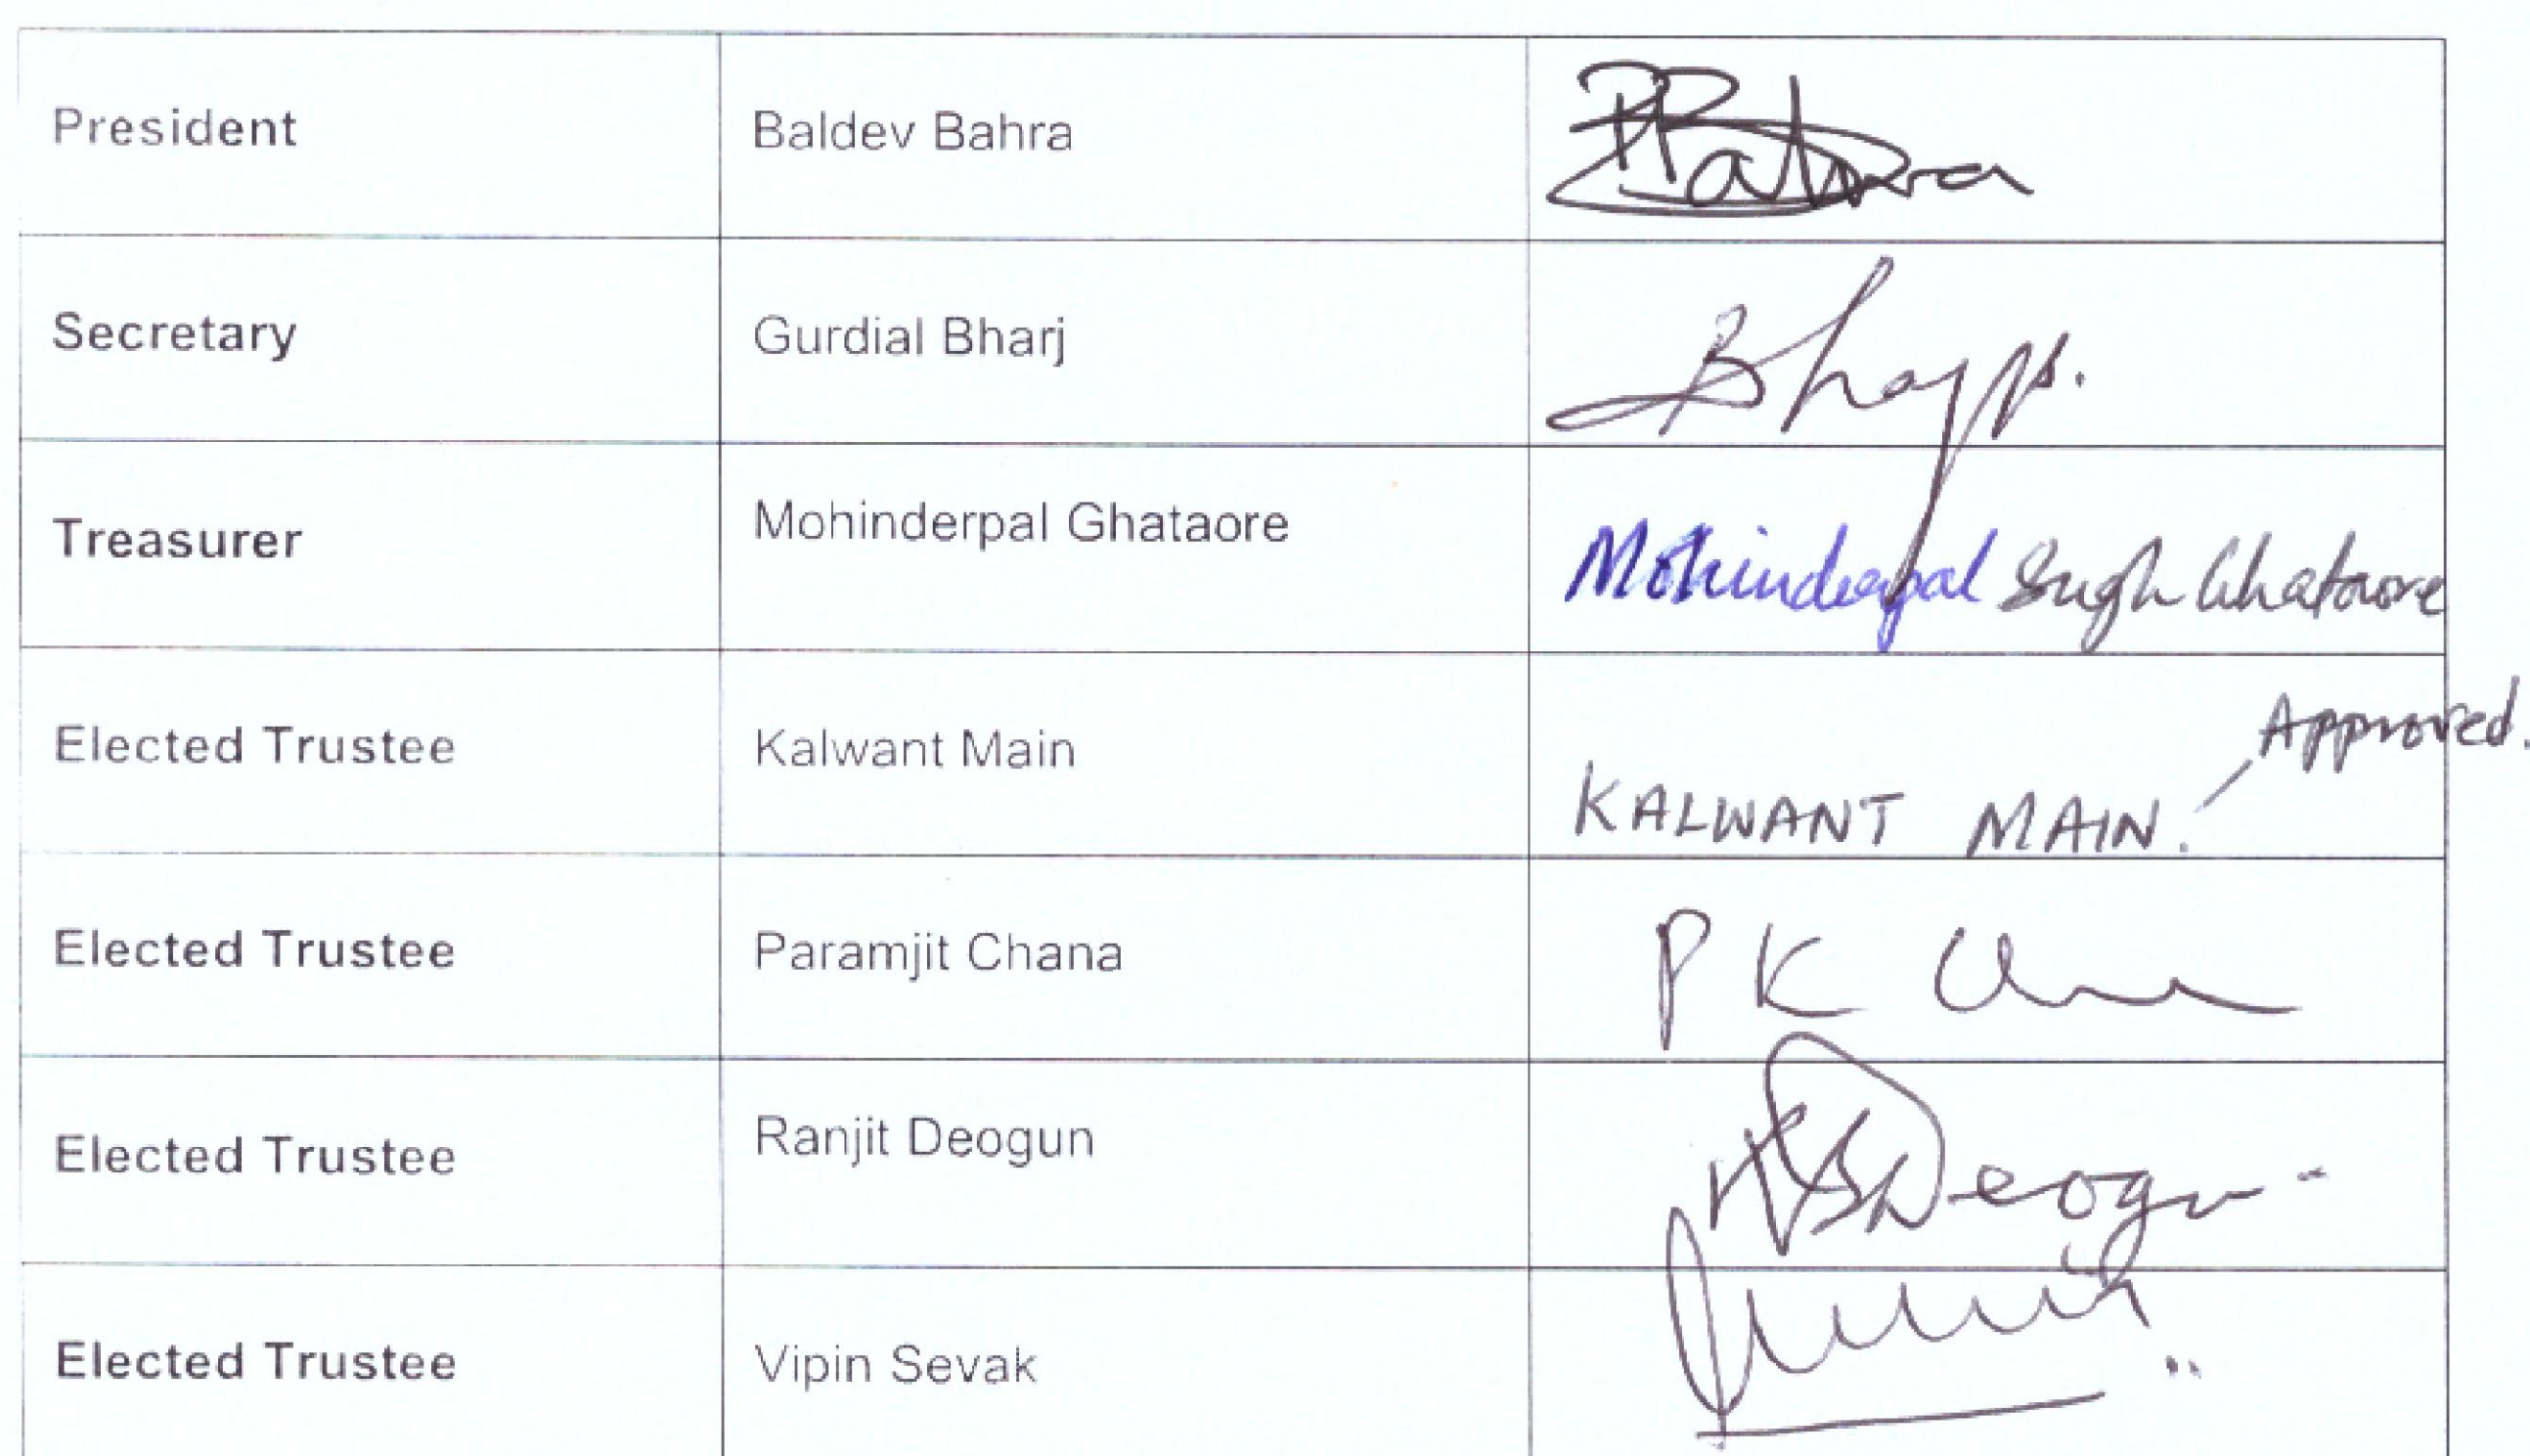 President Baldev Bahra BBahra
Secretary Gurdial Bharj
Treasurer Mohinderpal Ghataore Mohinderpal Singh Ghataore
Approved.
Elected Trustee Kalwant Main KALWANT MAIN.
Elected Trustee Paramjit Chana P K
Elected Trustee Ranjit Deogun
Elected Trustee Vipin Sevak